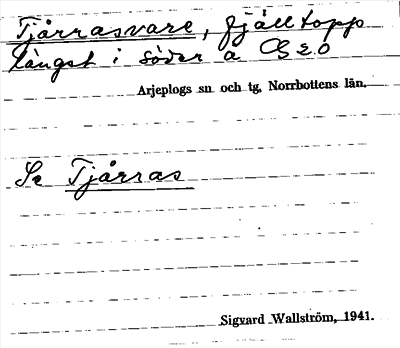 Tjårrasvare, fjälltopp
längst i söder å
Arjeplogs sn och tg, Norrbottens län.
Se Tjårras
Sigvard Wallström, 1941.